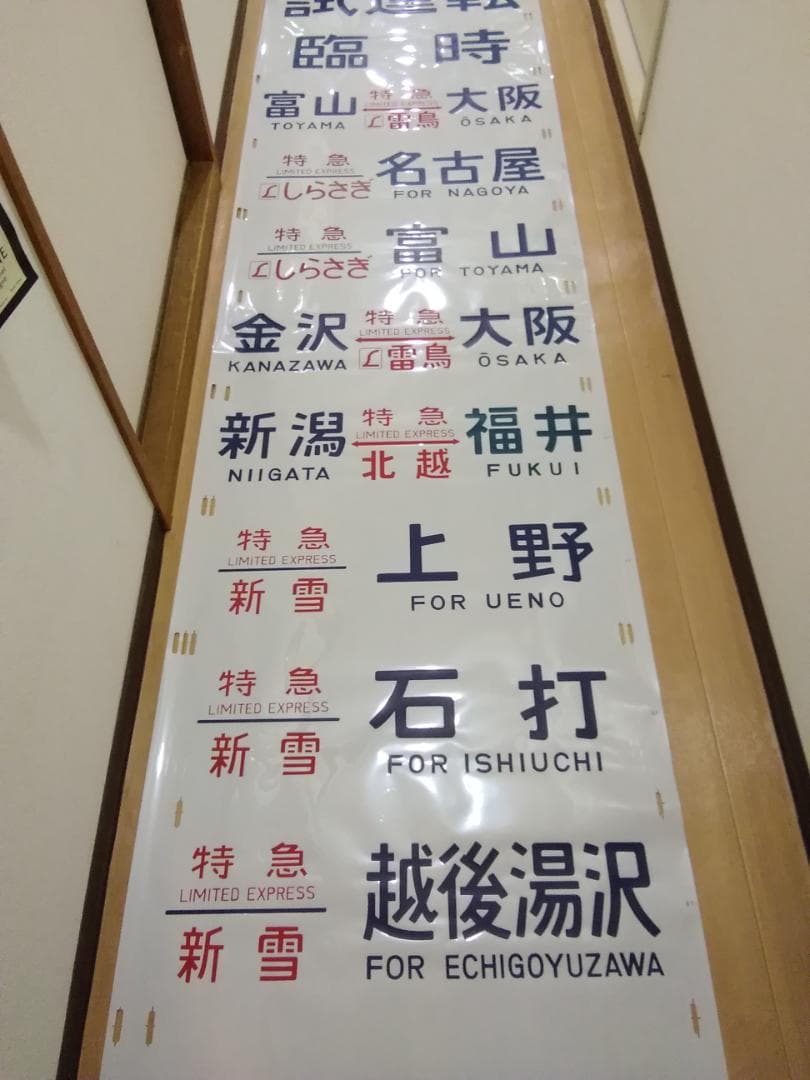 試運転
臨時
富山 特急 大阪
TOYAMA LIMITED EXPRESS ŌSAKA
L雷鳥
特急 名古屋
LIMITED EXPRESS FOR NAGOYA
Lしらさぎ
特急 富山
LIMITED EXPRESS FOR TOYAMA
Lしらさぎ
金沢 特急 大阪
KANAZAWA LIMITED EXPRESS ŌSAKA
L雷鳥
新潟 特急 福井
NIIGATA LIMITED EXPRESS FUKUI
北越
特急 上野
LIMITED EXPRESS
新雪 FOR UENO
特急 石打
LIMITED EXPRESS
新雪 FOR ISHIUCHI
特急 越後湯沢
LIMITED EXPRESS
新雪 FOR ECHIGOYUZAWA